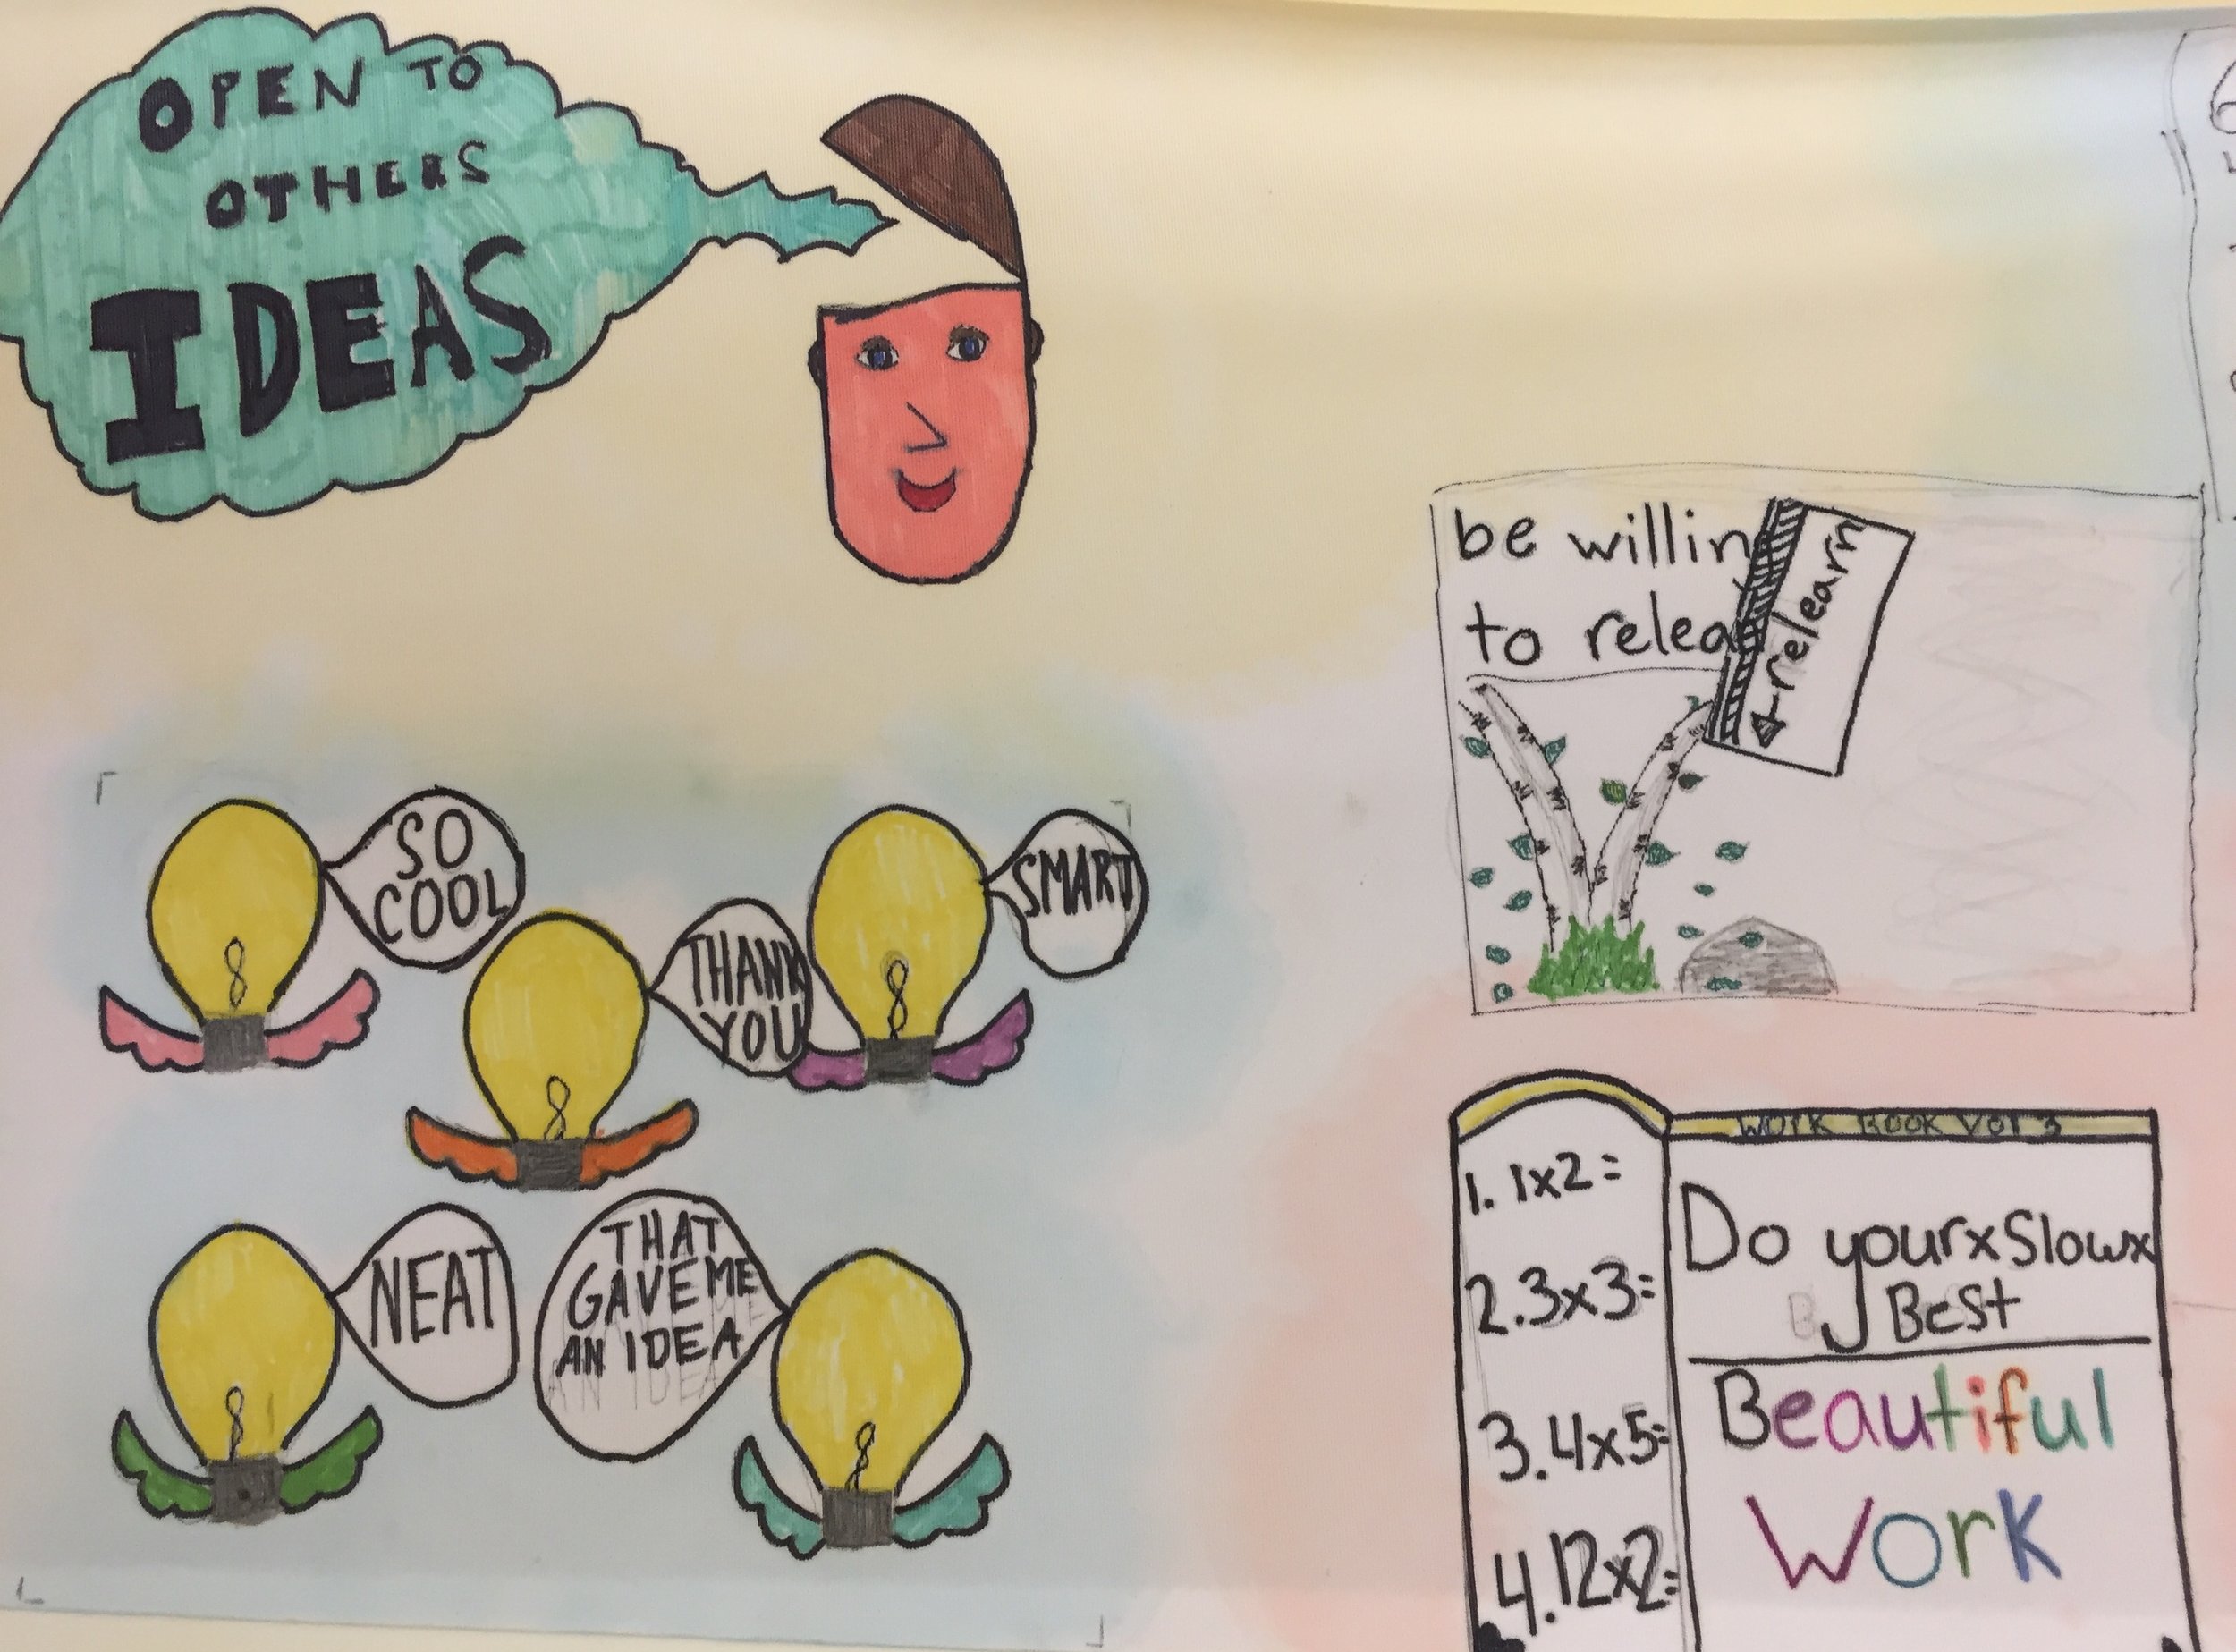 OPEN TO
OTHERS
IDEAS
be willin
to relea
relearn
SO
COOL
THANK
YOU
SMART
NEAT
THAT
GAVE ME
AN IDEA
WORK BOOK Vol 3
1. 1x2=
2. 3x3=
3. 4x5=
4. 12x2=
Do yourxSlowx
Best
Beautiful
Work